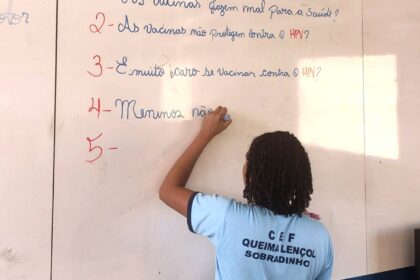 vacinas fazem mal para a saúde?
2- As vacinas não protegem contra o HPV?
3- É muito caro se vacinar contra o HPV?
4- Meninos não
5-
C E F
QUEIMA LENÇOL
SOBRADINHO